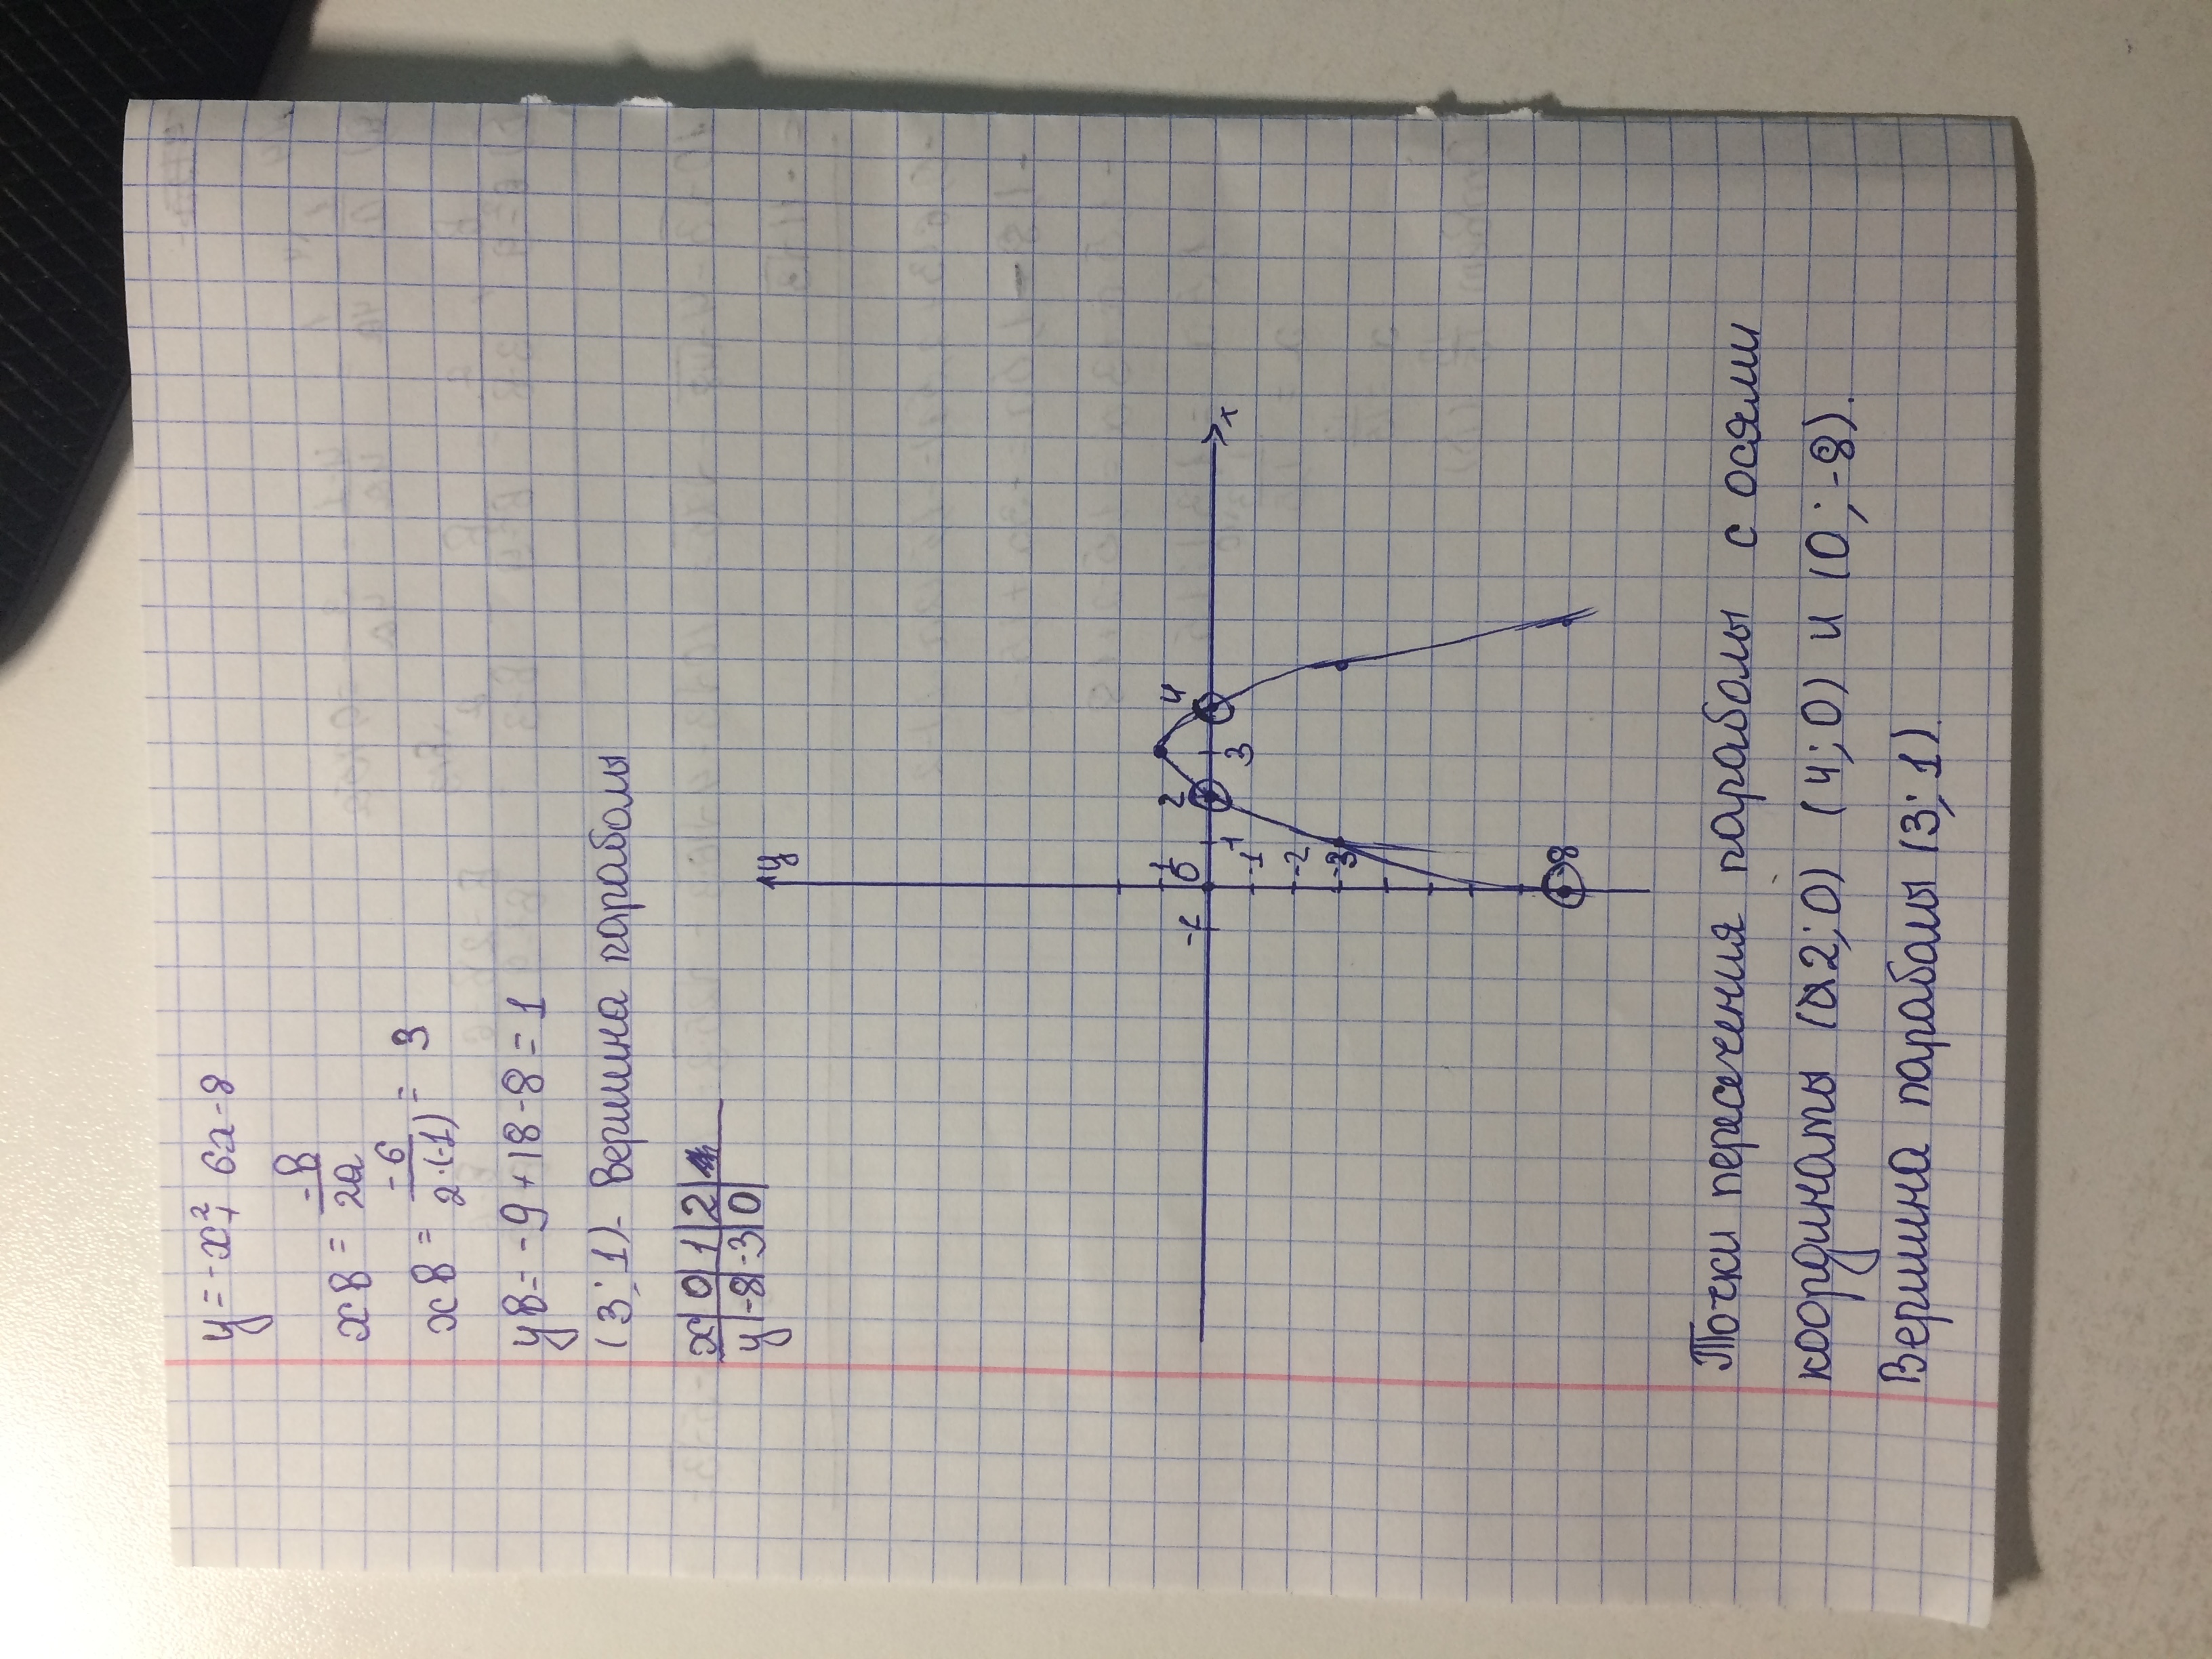 y = -x² + 6x - 8
xв = -в/2a
xв = -6/2·(-1) = 3
yв = -9 + 18 - 8 = 1
(3; 1) - вершина параболы
x | 0 | 1 | 2
y | -8 | -3 | 0
y
1
-1 0 1 2 3 4 x
-1
-2
-3
-8
Точки пересечения параболы с осями
координаты (2; 0) (4; 0) и (0; -8).
Вершина параболы (3; 1)